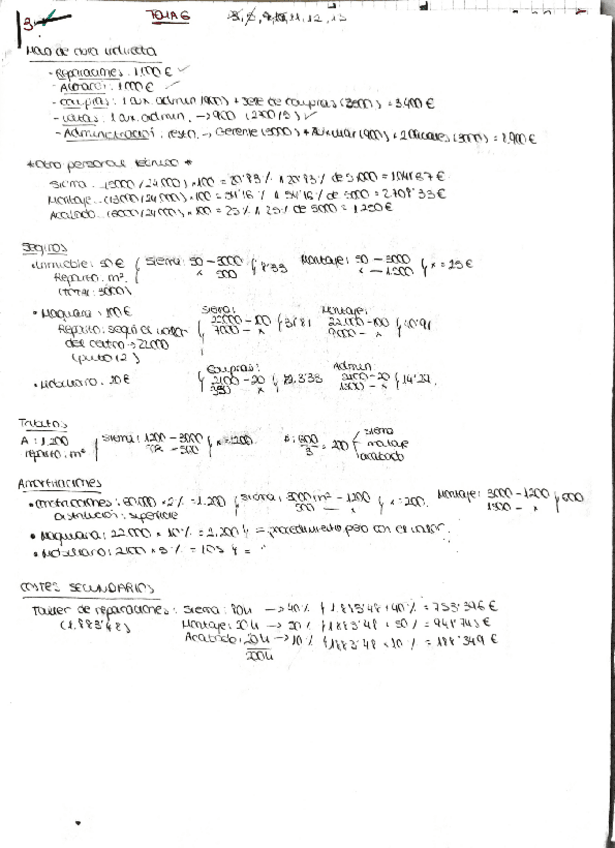 3. TEMA 6
Mano de obra indirecta
- Reparaciones: 1.000€ ✓
- Almacén: 1000€ ✓
- Compras: 1 aux. admin (900) + Jefe de compras (2500) = 3400€
- Ventas: 1 aux. admin. → 900 (2700/3) ✓
- Administración: resto. → Gerente (5000) + Auxiliar (900) + 2 oficiales (3000) =
* Otro personal técnico *
Sierra: (5000/24000) × 100 = 20'83%
Montaje: (13000/24000) × 100 = 54'16% 54'16% de 5000 = 2708'33€
Acabado: (6000/24000) × 100 = 25% 25% de 5000 = 1.250€
Seguros
• Inmueble: 50€
Reparto: m²
(TOTAL: 3000)
Sierra: 50 - 3000
x 500
8'33
Montaje: 50 - 3000
x - 1500
x = 25€
• Maquinaria: 100€
Reparto: según el valor
del centro → 22000
(punto 12)
Sierra:
22000 - 100
7000 - x
31'81
Montaje:
22.000 - 100
9000 - x
40'91
• Mobiliario: 20€
Compras:
2100 - 20
350 - x
Admin:
2100 - 20
1500 - x
Tributos
A: 1.200
reparto: m²
Sierra: 1200 - 3000
x - 500
x = 200
B: 600
3
= 200
Sierra
montaje
acabado
Amortizaciones
• Construcciones: 60.000 × 2% = 1.200
Distribución: superficie
Sierra: 3000 m² - 1200
500 - x
x = 200
Montaje: 3000 - 1200
1500 - x
600
• Maquinaria: 22.000 × 10% = 2.200 = procedimiento pero con el valor
• Mobiliario: 2100 × 5% = 105 =
COSTES SECUNDARIOS
Taller de reparaciones: Sierra: 80u → 40% 1.883'48 × 40% = 753'396€
(1.883'48)
Montaje: → 50% 1883'48 × 50% = 941'743€
Acabado: 20u → 10% 1883'48 × 10% = 188'349€
200u